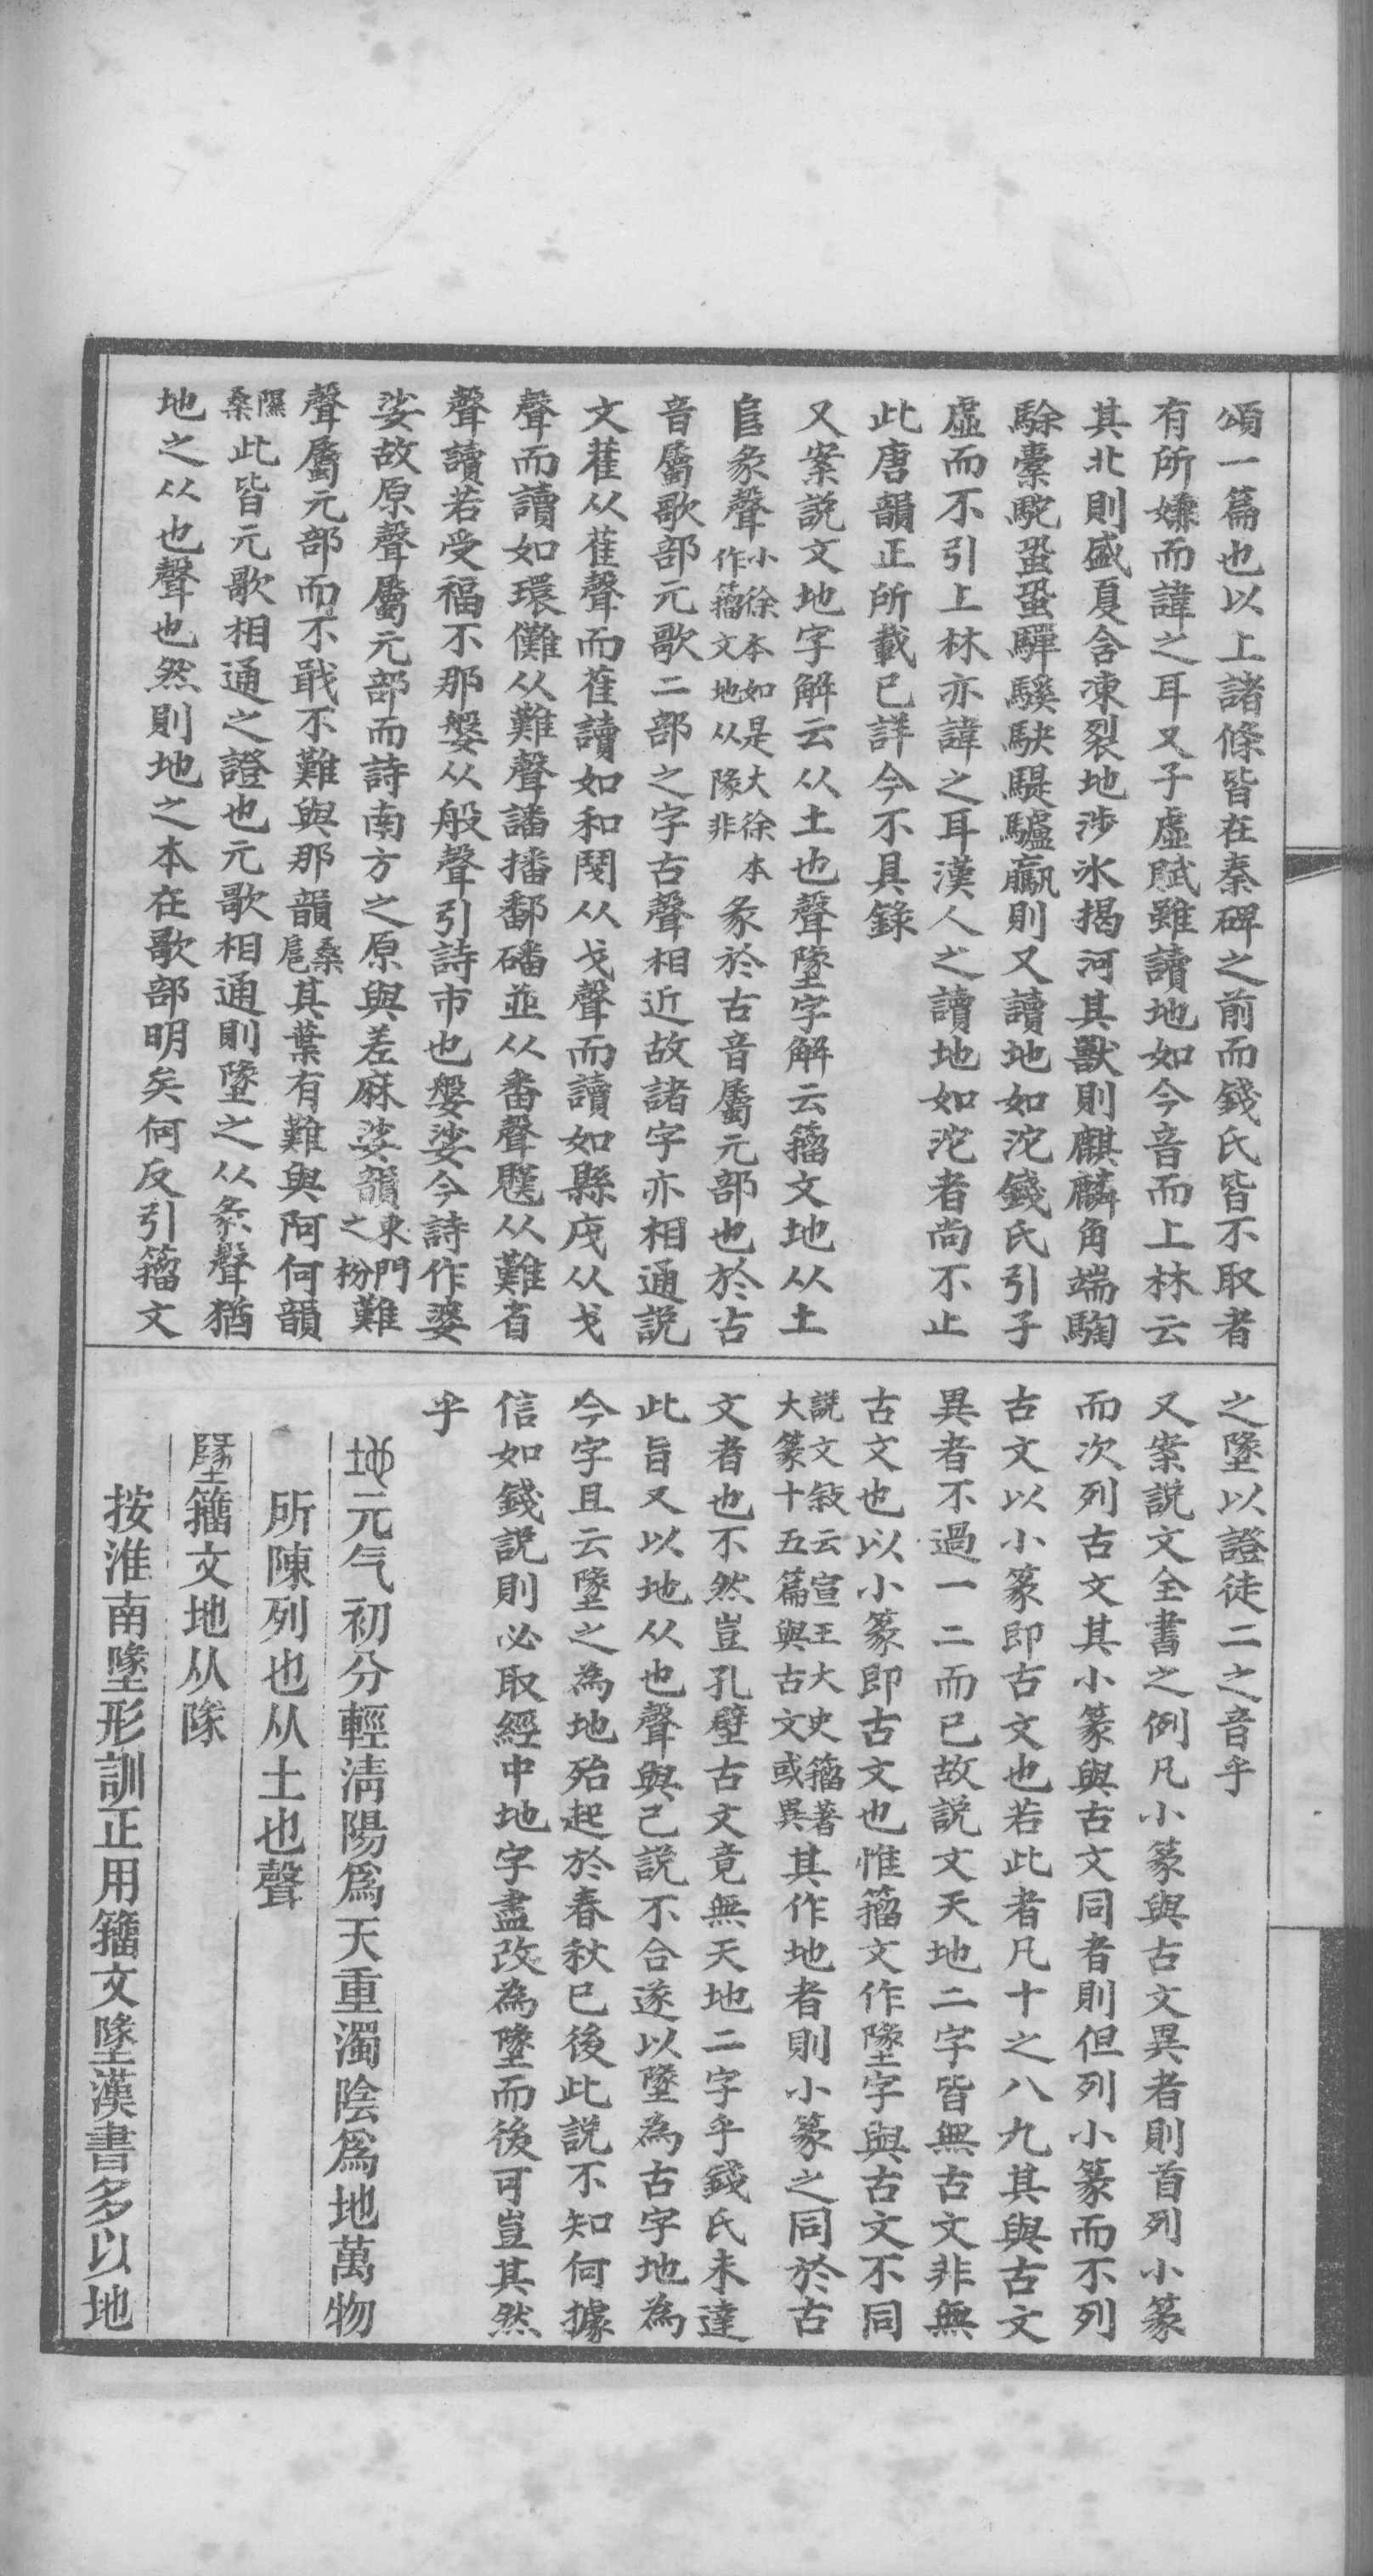 頌一篇也以上諸條皆在秦碑之前而錢氏皆不取者
有所嫌而諱之耳又子虛賦雖讀地如今音而上林云
其北則盛夏含凍裂地涉冰揭河其獸則麒麟角端騊
駼橐駝蛩蛩驒騱駃騠驢驘則又讀地如沱錢氏引子
虛而不引上林亦諱之耳漢人之讀地如沱者尚不止
此唐韻正所載已詳今不具錄
又案說文地字解云从土也聲墬字解云籀文地从土
𨸏彖聲小徐本如是大徐本作籀文地从隊非彖於古音屬元部也於古
音屬歌部元歌二部之字古聲相近故諸字亦相通說
文萑从雈聲而雈讀如和閺从戈聲而讀如縣戍从戈
聲而讀如環儺从難聲譒播鄱磻並从番聲魌从難省
聲讀若受福不那媻从般聲引詩市也媻娑今詩作婆
娑故原聲屬元部而詩南方之原與差麻娑韻東門之枌難
聲屬元部而不戢不難與那韻桑扈其葉有難與阿何韻
隰桑此皆元歌相通之證也元歌相通則墬之从彖聲猶
地之从也聲也然則地之本在歌部明矣何反引籀文
之墬以證徒二之音乎
又案說文全書之例凡小篆與古文異者則首列小篆
而次列古文其小篆與古文同者則但列小篆而不列
古文以小篆即古文也若此者凡十之八九其與古文
異者不過一二而已故說文天地二字皆無古文非無
古文也以小篆即古文也惟籀文作墬字與古文不同
說文敘云宣王大史籀著大篆十五篇與古文或異其作地者則小篆之同於古
文者也不然豈孔壁古文竟無天地二字乎錢氏未達
此旨又以地从也聲與己說不合遂以墬為古字地為
今字且云墬之為地殆起於春秋已後此說不知何據
信如錢說則必取經中地字盡改為墬而後可豈其然
乎
地元气初分輕淸陽爲天重濁陰爲地萬物
所陳列也从土也聲
墬籒文地从隊
按淮南墬形訓正用籒文墬漢書多以地